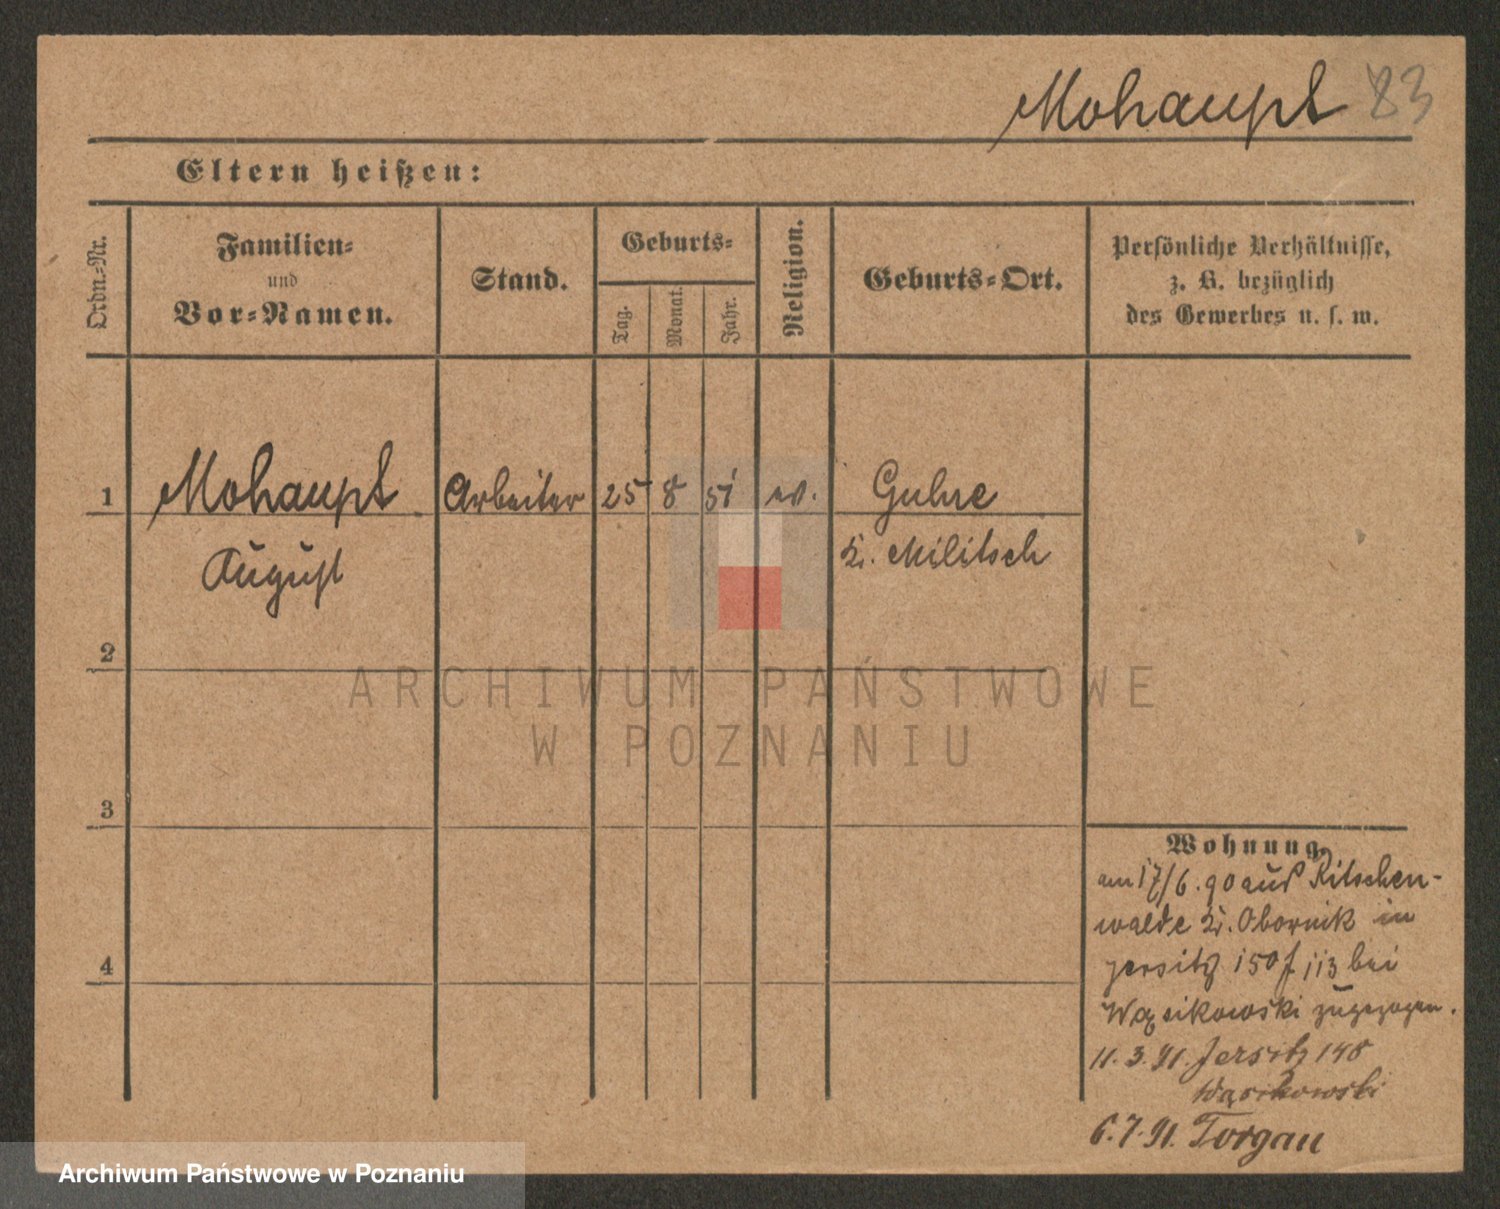 Mohaupt 83
Eltern heißen:
Ordn.=Nr.
Familien=
und
Vor=Namen.
Stand.
Geburts=
Tag.
Monat.
Jahr.
Religion.
Geburts=Ort.
Persönliche Verhältnisse,
z. B. bezüglich
des Gewerbes u. s. w.
1 Mohaupt Arbeiter 25 8 51 ev. Guhre
August Kr. Militsch
2
3
4
ARCHIWUM PAŃSTWOWE
W POZNANIU
Wohnung.
am 17/6. 90 aus Ritschen-
walde Kr. Obornik in
Jersitz 150 113 bei
Wąsikowski zugezogen.
11. 3. 91. Jersitz 148
Wąsikowski
6. 7. 91. Torgau
Archiwum Państwowe w Poznaniu